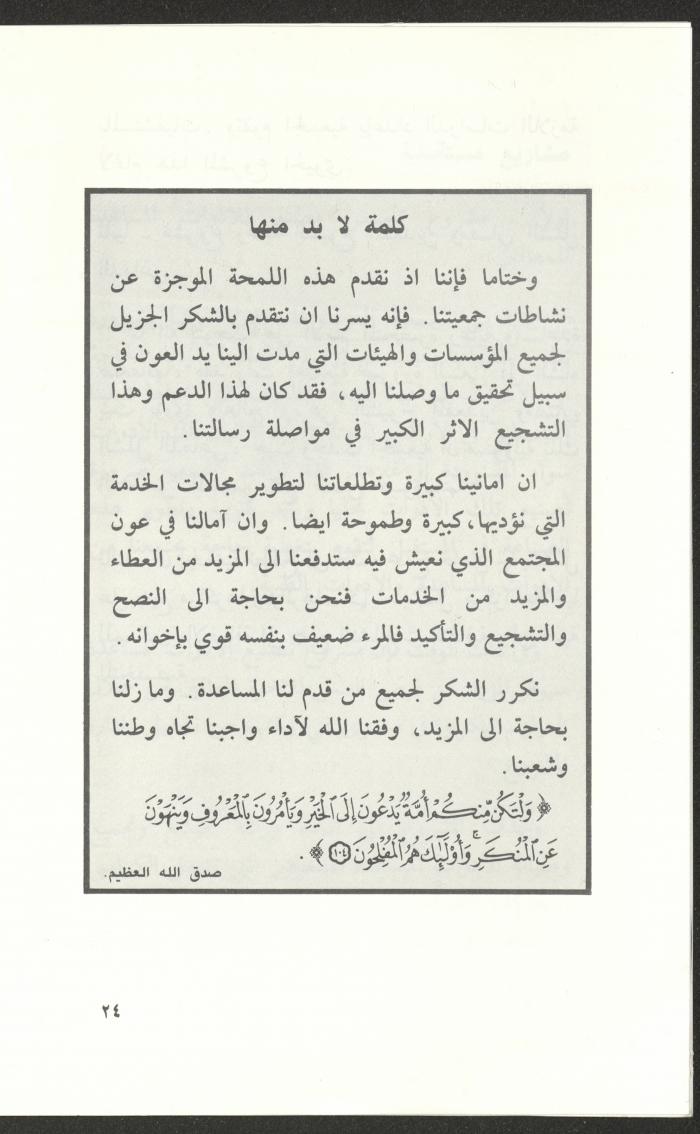 كلمة لا بد منها
وختاما فإننا اذ نقدم هذه اللمحة الموجزة عن
نشاطات جمعيتنا. فإنه يسرنا ان نتقدم بالشكر الجزيل
لجميع المؤسسات والهيئات التي مدت الينا يد العون في
سبيل تحقيق ما وصلنا اليه، فقد كان لهذا الدعم وهذا
التشجيع الاثر الكبير في مواصلة رسالتنا.
ان امانينا كبيرة وتطلعاتنا لتطوير مجالات الخدمة
التي نؤديها، كبيرة وطموحة ايضا. وان آمالنا في عون
المجتمع الذي نعيش فيه ستدفعنا الى المزيد من العطاء
والمزيد من الخدمات فنحن بحاجة الى النصح
والتشجيع والتأكيد فالمرء ضعيف بنفسه قوي بإخوانه.
نكرر الشكر لجميع من قدم لنا المساعدة. وما زلنا
بحاجة الى المزيد، وفقنا الله لآداء واجبنا تجاه وطننا
وشعبنا.
﴿ وَلْتَكُن مِّنكُمْ أُمَّةٌ يَدْعُونَ إِلَى الْخَيْرِ وَيَأْمُرُونَ بِالْمَعْرُوفِ وَيَنْهَوْنَ
عَنِ الْمُنكَرِ ۚ وَأُوْلَٰٓئِكَ هُمُ الْمُفْلِحُونَ ١٠٤ ﴾ .
صدق الله العظيم.
٢٤